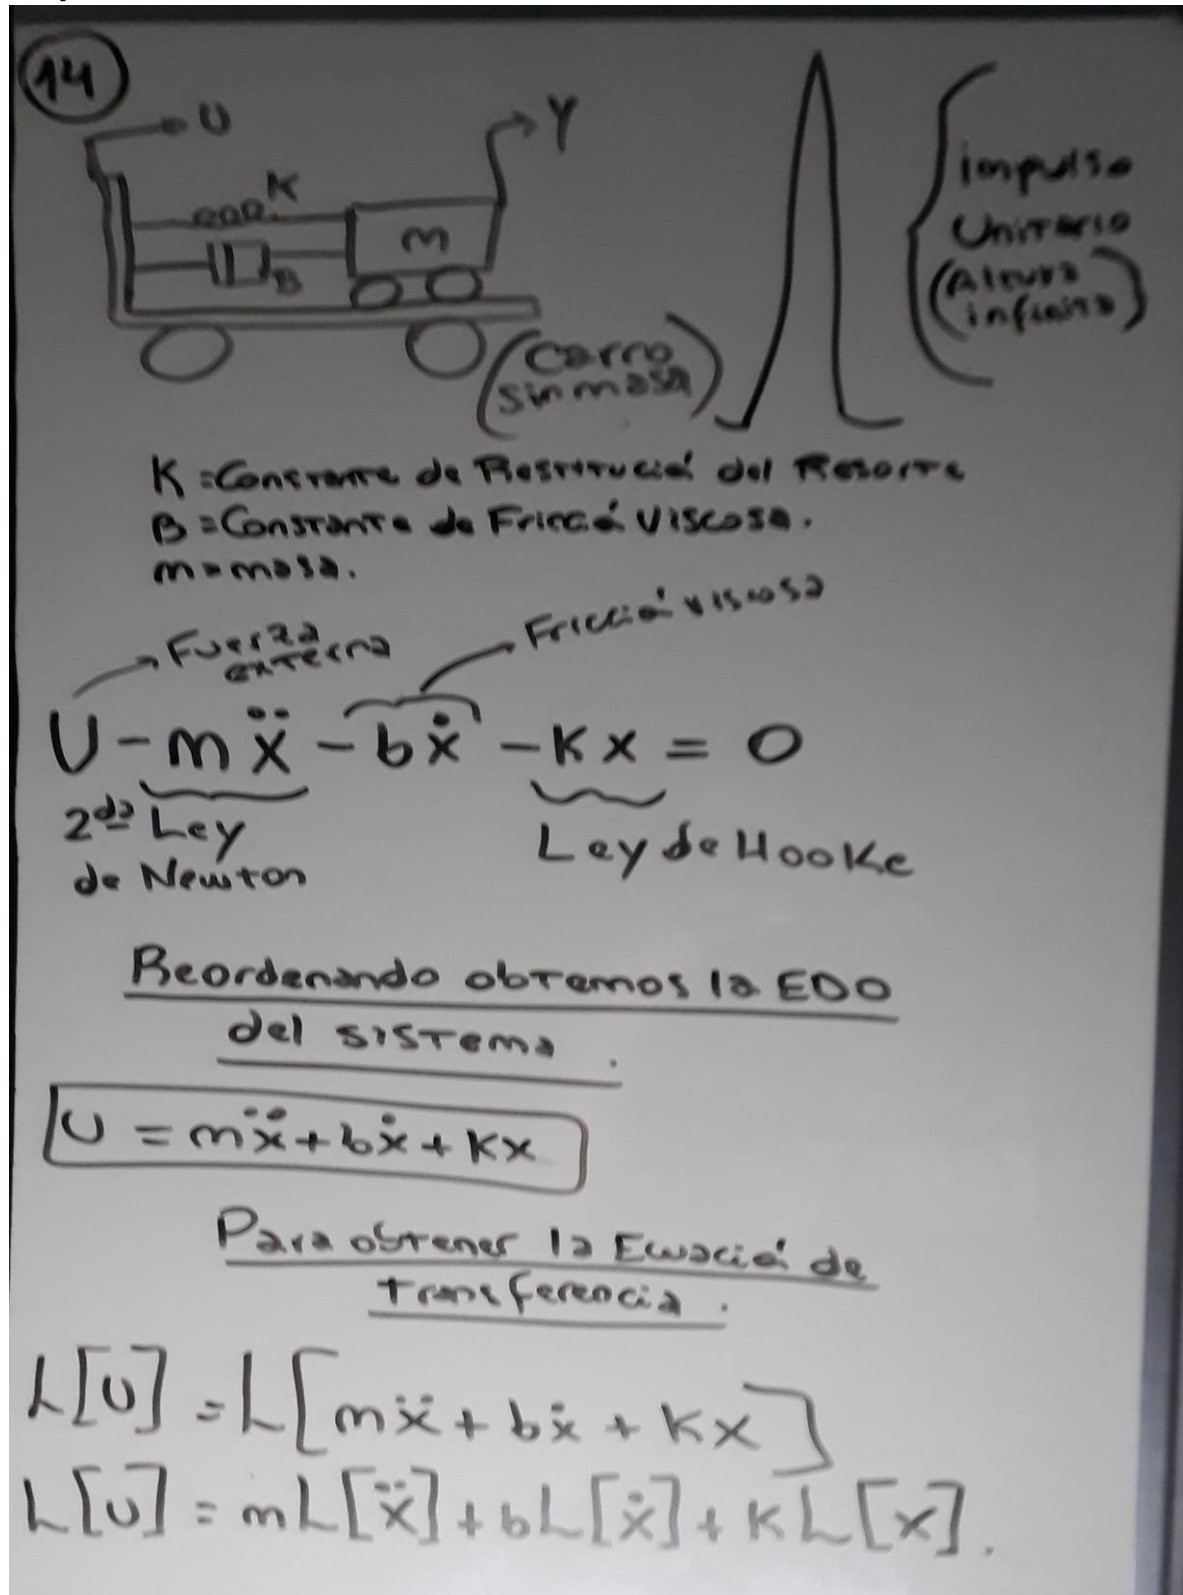 14
U
Y
K
m
B
(Carro
sin masa)
impulso
Unitario
(Altura
infinita)
K = Constante de Restitució del Resorte
B = Constante de Fricció Viscosa.
m = masa.
Fuerza
externa
Fricció viscosa
U - mẍ - bẋ - Kx = 0
2da Ley
de Newton
Ley de Hooke
Reordenando obtemos la EDO
del sistema.
U = mẍ + bẋ + Kx
Para obtener la Ecuació de
transferencia.
L[U] = L[mẍ + bẋ + Kx]
L[U] = mL[ẍ] + bL[ẋ] + KL[x].